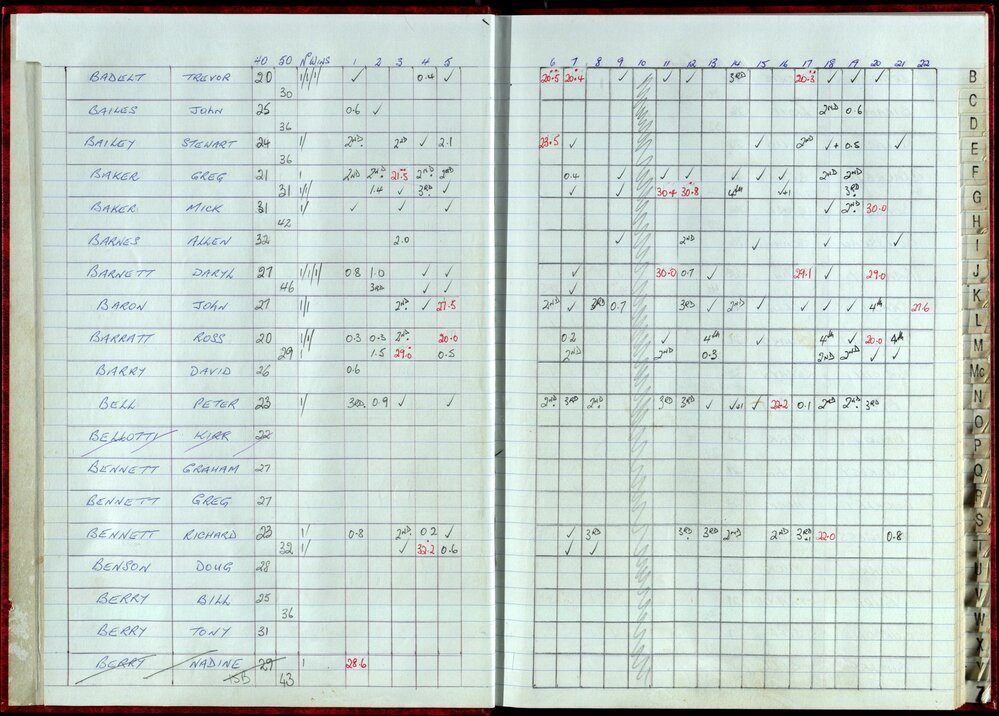 40 50 Nº WINS 1 2 3 4 5 6 7 8 9 10 11 12 13 14 15 16 17 18 19 20 21 22
BADELT TREVOR 20 1/1/1/ ✓ 0.4 ✓ 20.5 20.4 ✓ ✓ ✓ 3RD 20.3 ✓ ✓ ✓
30
BAILES JOHN 25 0.6 ✓ 2ND 0.6
36
BAILEY STEWART 24 1/ 2ND 2ND ✓ 2.1 23.5 ✓ ✓ 2ND ✓+ 0.5 ✓
36
BAKER GREG 21 1 2ND 2ND 21.5 2ND 2ND 0.4 ✓ ✓ ✓ ✓ ✓ ✓ 2ND 2ND
31 1/1/ 1.4 ✓ 3RD ✓ ✓ ✓ 30.4 30.8 4th ✓+1 3RD
BAKER MICK 31 1/ ✓ ✓ ✓ ✓ 2ND 30.0
42
BARNES ALLEN 32 2.0 ✓ 2ND ✓ ✓ ✓
BARNETT DARYL 27 1/1/1/ 0.8 1.0 ✓ ✓ ✓ 30.0 0.7 ✓ 29.1 ✓ 29.0
46 3RD ✓ ✓ ✓
BARON JOHN 27 1/1 2ND ✓ 27.5 2ND ✓ 3RD 0.7 3RD ✓ 2ND ✓ ✓ ✓ ✓ 4th 27.6
BARRATT ROSS 20 1/1/ 0.3 0.3 2ND 20.0 0.2 ✓ 4th ✓ 4th ✓ 20.0 4th
29 1 1.5 29.0 0.5 2ND 2ND 0.3 2ND 2ND ✓ ✓
BARRY DAVID 26 0.6
BELL PETER 23 1/ 3RD 0.9 ✓ ✓ 2ND 3RD 2ND 3RD 3RD ✓ ✓+1 ✓ 22.2 0.1 2ND 2ND 3RD
BELLOTTI KIRR 22
BENNETT GRAHAM 27
BENNETT GREG 27
BENNETT RICHARD 23 1/ 0.8 2ND 0.2 ✓ ✓ 3RD 3RD 3RD 2ND 2ND 3RD 22.0 0.8
32 1/ ✓ 32.2 0.6 ✓ ✓
BENSON DOUG 28
BERRY BILL 25
36
BERRY TONY 31
BERRY NADINE 29 1 28.6
43
B
C
D
E
F
G
H
I
J
K
L
M
Mc
N
O
P
Q
R
S
T
U
V
W
X
Y
Z